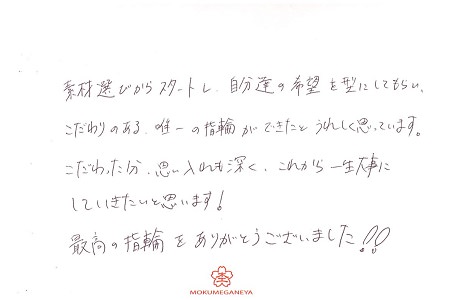 素材選びからスタートし、自分達の希望を型にしてもらい、
こだわりのある、唯一の指輪ができたとうれしく思っています。
こだわった分、思い入れも深く、これから一生大事に
していきたいと思います!
最高の指輪をありがとうございました!!
MOKUMEGANEYA